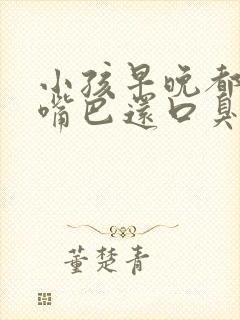 小孩早晚都
嘴巴還口臭
董楚青